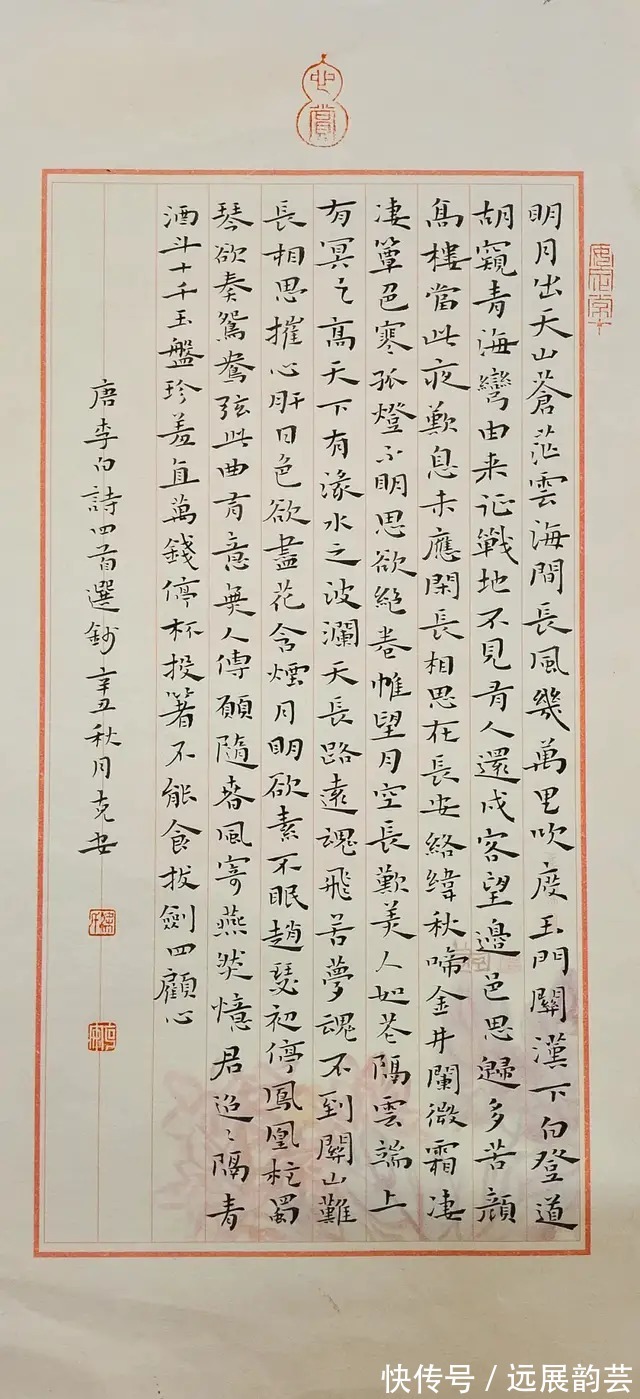 心賞
明月出天山蒼茫雲海間長風幾萬里吹度玉門關漢下白登道
胡窺青海灣由来征戰地不見有人還戍客望邊邑思歸多苦顏
高樓當此夜歎息未應閑長相思在長安絡緯秋啼金井闌微霜凄
凄簟色寒孤燈不明思欲絕卷帷望月空長歎美人如花隔雲端上
有冥〻高天下有淥水之波瀾天長路遠魂飛苦夢魂不到關山難
長相思摧心肝日色欲盡花含煙月明欲素不眠趙瑟初停鳳凰柱蜀
琴欲奏鴛鴦弦此曲有意無人傳願隨春風寄燕然憶君迢〻隔青
酒斗十千玉盤珍羞直萬錢停杯投箸不能食拔劍四顧心
唐李白詩四首選鈔辛丑秋月克安
快传号/远展韵芸